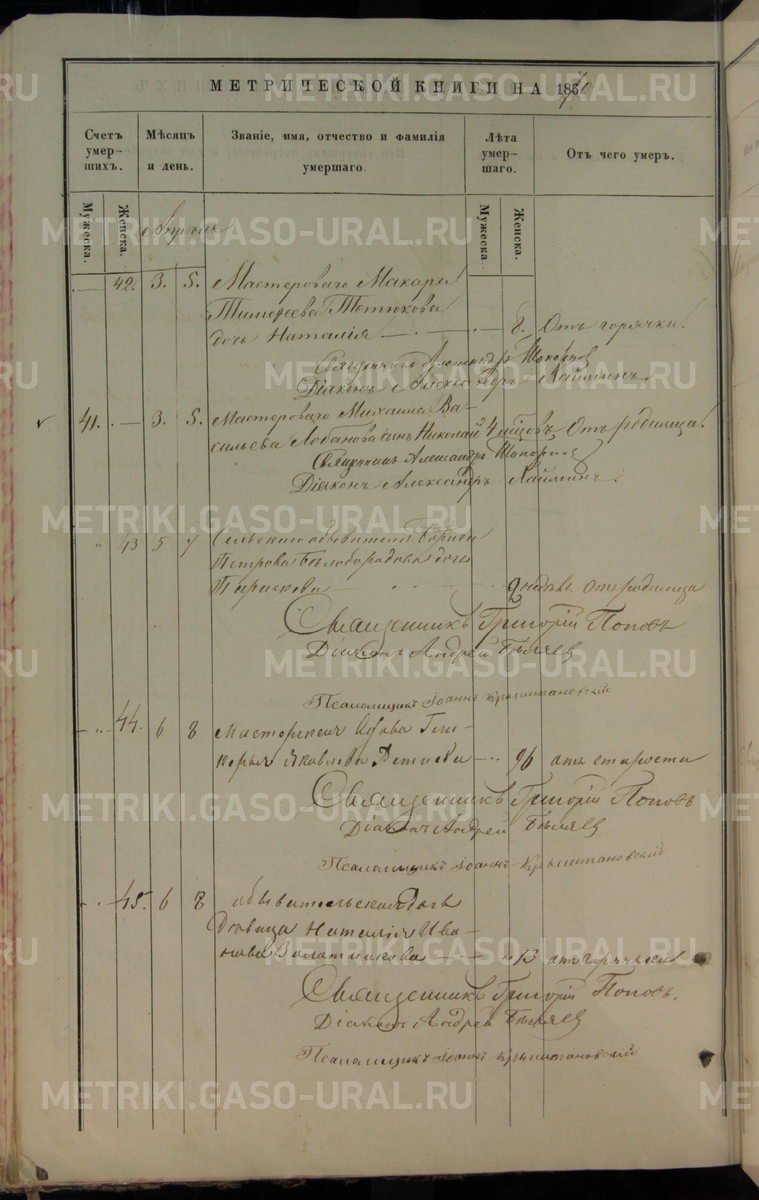 МЕТРИЧЕСКОЙ КНИГИ НА 1870
Счетъ умер-шихъ.
Мѣсяцъ и день.
Званіе, имя, отчество и фамилія умершаго.
Лѣта умер-шаго.
Отъ чего умеръ.
Мужеска.
Женска.
Мужеска.
Женска.
Апрѣль
— 42. 3. 5. Мастероваго Макара
Тимоѳеева Тетюхова
дочь Наталія — — 8. Отъ горячки.
Священникъ Александръ Топорковъ
Діаконъ Александръ Ляпминъ.
41. — 3. 5. Мастероваго Михаила Ва-
сильева Лобанова сынъ Николай 4 мѣсяцовъ Отъ родимца.
Священникъ Александръ
Діаконъ Александръ
" 43 5 7 Сельскаго обывателя Бориса
Петрова Бѣлобородова дочь
Параскева — 2 недѣль отъ родимца
Священникъ Григорій Поповъ
Діаконъ Андрей Бѣляев
Псаломщикъ Іоаннъ Крыштановскій
44. 6 8 Мастерская вдова Гли-
керья Яковлева — " 96 отъ старости
Священникъ Григорій Поповъ
Діаконъ Андрей Бѣляев
Псаломщикъ Іоаннъ Крыштановскій
45. 6 8 обывательская дочь
Дѣвица Наталія Ива-
нова — " 13 отъ горячки
Священникъ Григорій Поповъ.
Діаконъ Андрей Бѣляев
Псаломщикъ Іоаннъ Крыштановскій
METRIKI.GASO-URAL.RU